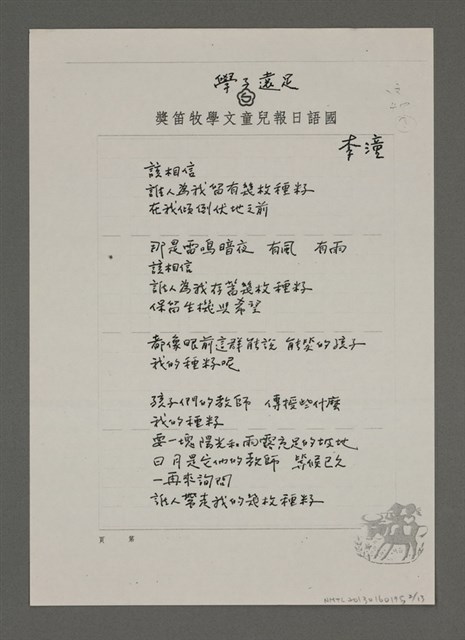 學子遠足
國語日報兒童文學牧笛獎
李潼
該相信
誰人為我留有幾枚種籽
在我傾倒伏地之前
那是雷鳴暗夜 有風 有雨
該相信
誰人為我存蓄幾枚種籽
保留生機與希望
都像眼前這群能說 能笑的孩子
我的種籽呢
孩子們的教師 傳授些什麼
我的種籽
要一塊陽光和雨露充足的坡地
日月是它們的教師 等候已久
一再來詢問
誰人帶走我的幾枚種籽
第 頁
NMTL20130160195 2/13